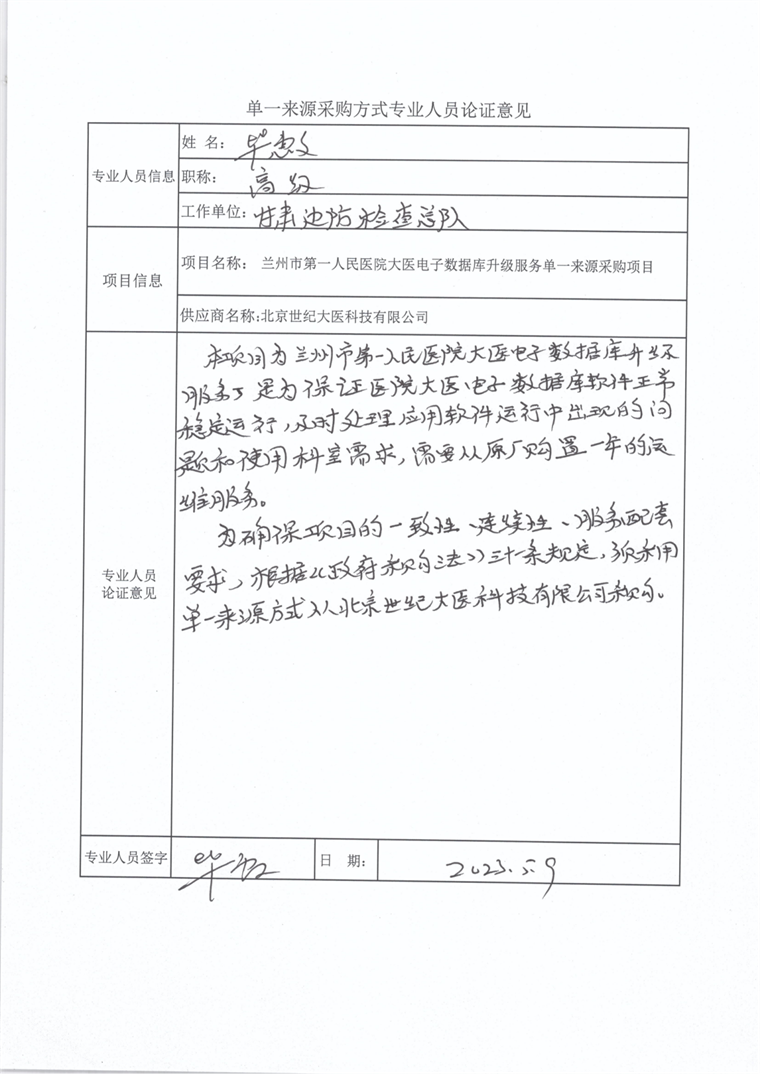 单一来源采购方式专业人员论证意见
专业人员信息
姓 名： 毕惠文
职称： 高级
工作单位：甘肃边防检查总队
项目信息
项目名称： 兰州市第一人民医院大医电子数据库升级服务单一来源采购项目
供应商名称:北京世纪大医科技有限公司
专业人员
论证意见
本项目为兰州市第一人民医院大医电子数据库升级
服务，是为保证医院大医电子数据库软件正常
稳定运行，及时处理应用软件运行中出现的问
题和使用科室需求，需要从原厂购置一年的运
维服务。
为确保项目的一致性、连续性、服务配套
要求，根据《政府采购法》三十一条规定，须采用
单一来源方式从北京世纪大医科技有限公司采购。
专业人员签字
日 期：
2023.5.9